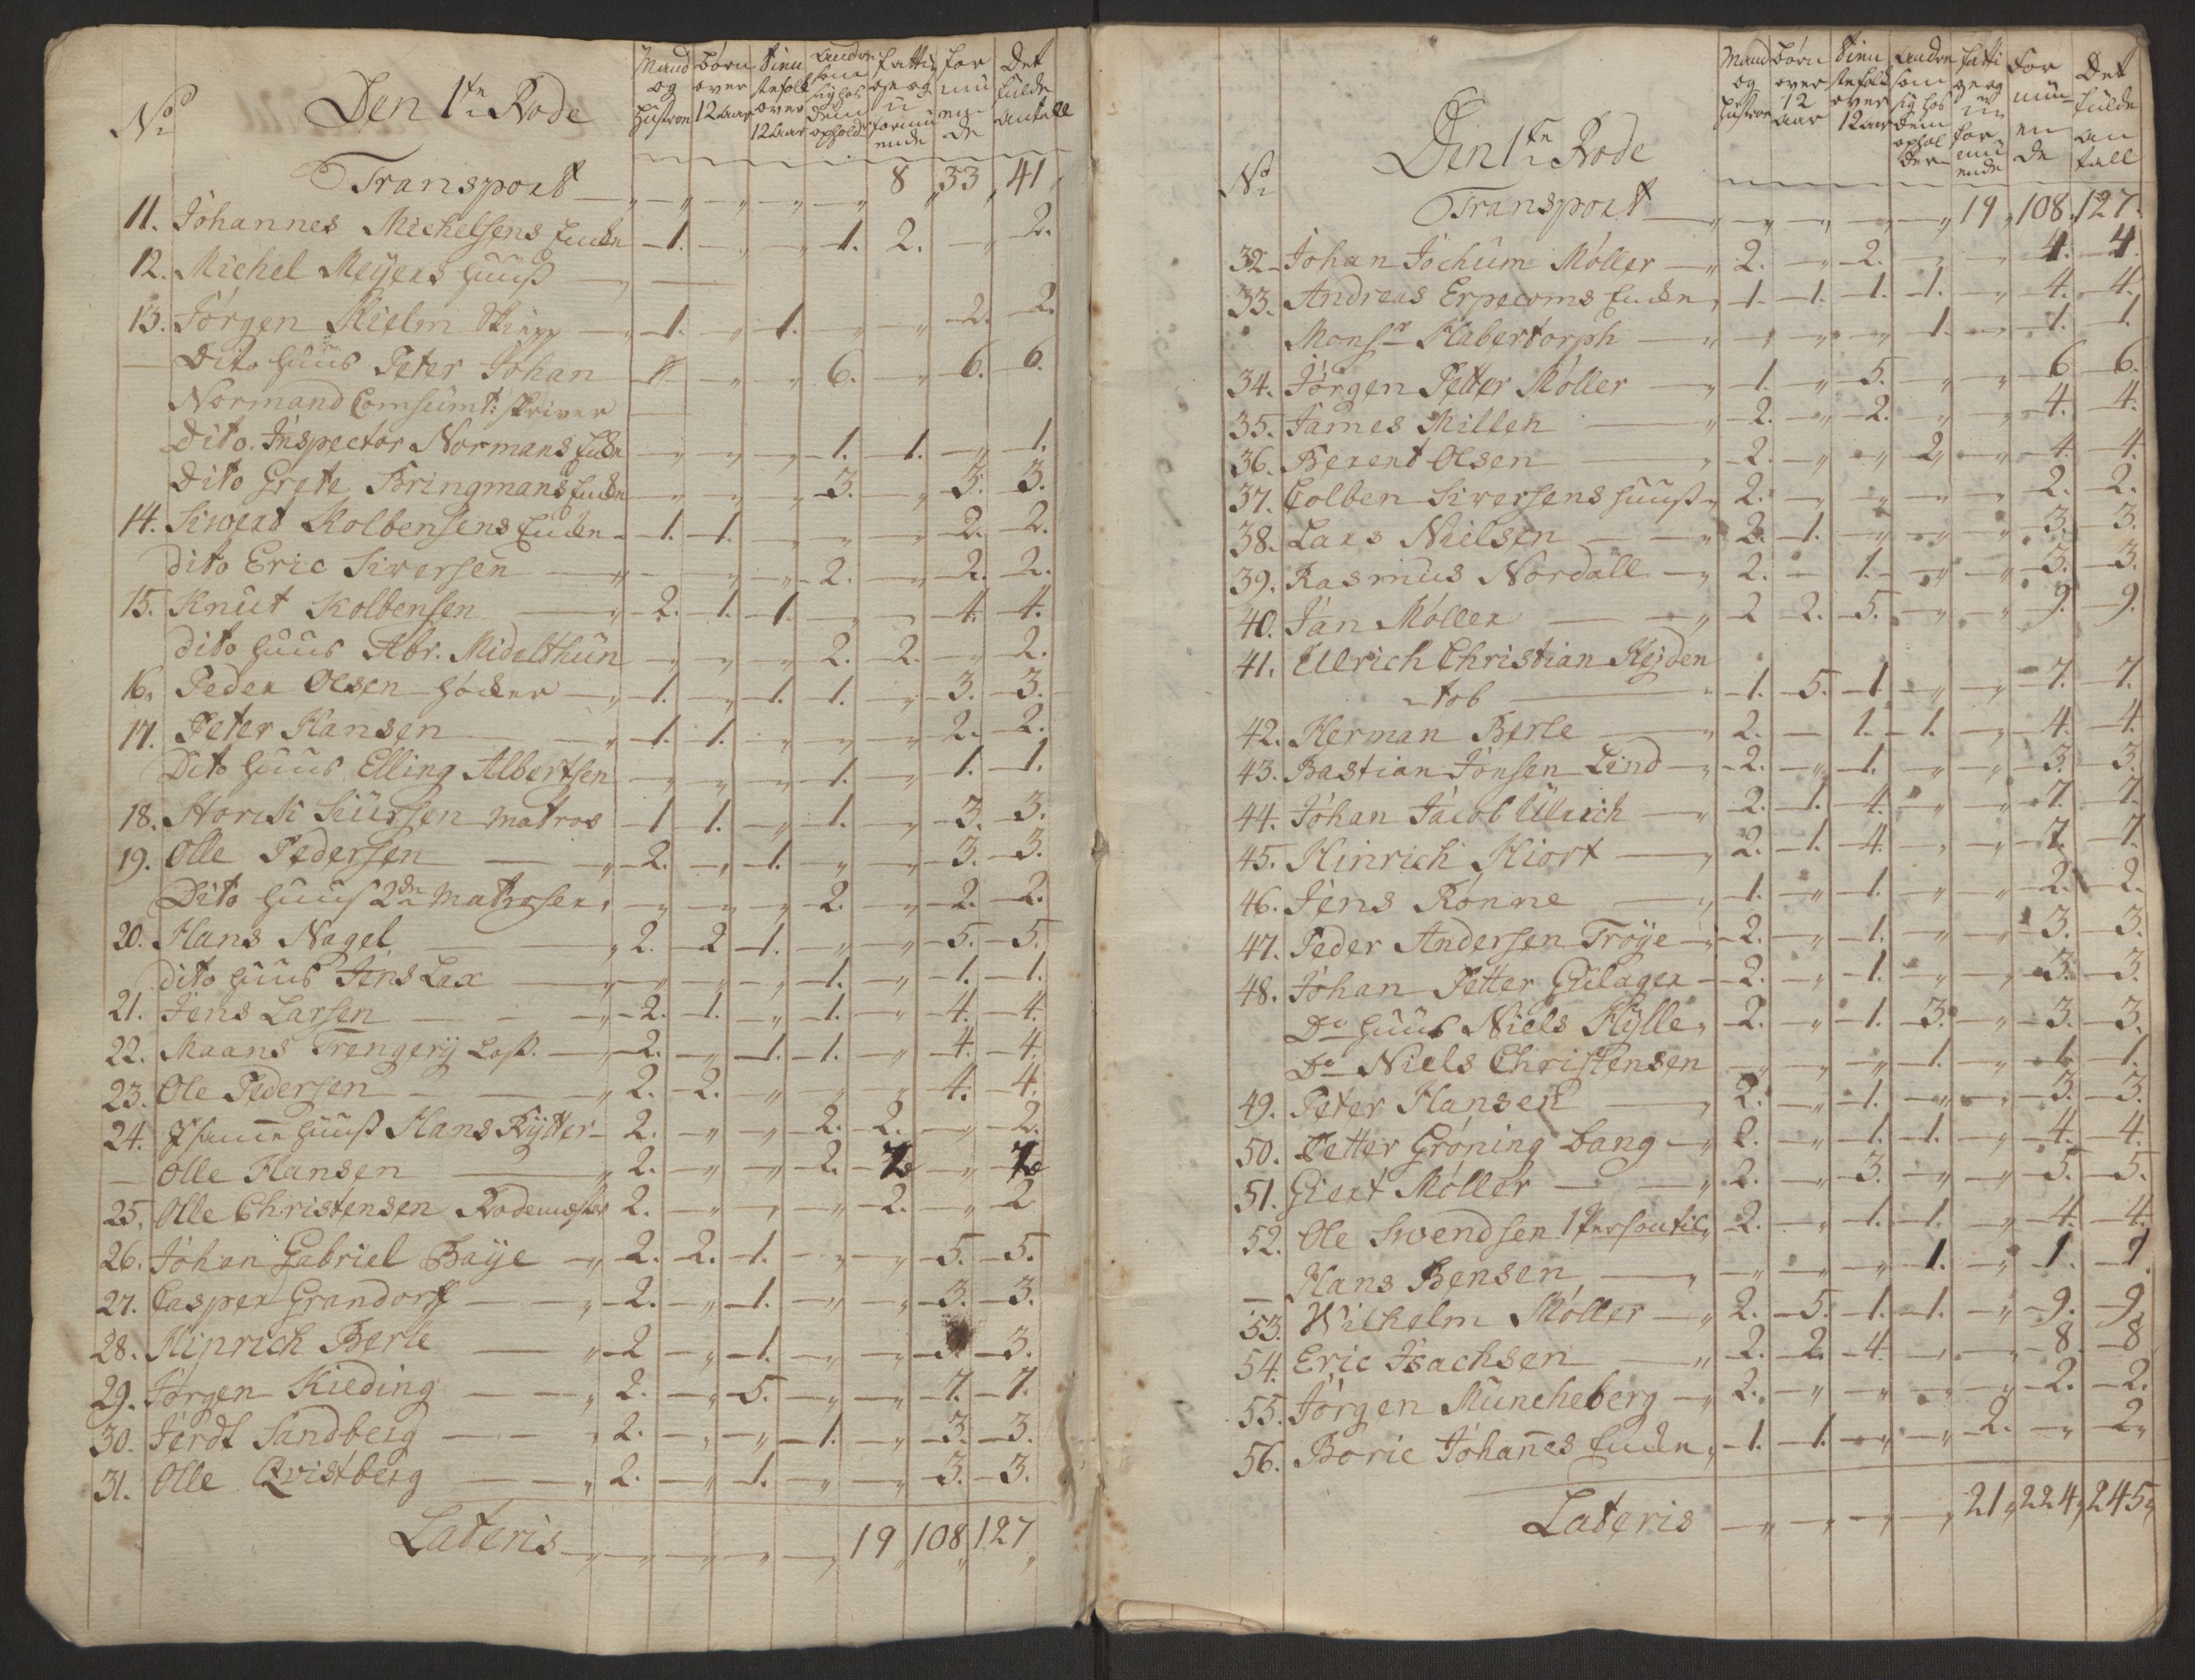 No
Den 1te Rode
Mand og Hustroe
børn over 12 aar
tienestefolk over 12 aar
andre som sig hos dem opholde
fattige og uformuende
formuende
Det fulde antall
Transport — „ — „ — „ — „ — „ 8 „ 33 „ 41 „
11. Johannes Michelsens Encke — 1. — „ — „ — 1. 2. — „ 2.
12. Michel Meyers huuß — „ —
13. Jørgen Kielm — „ — 1. — „ — 1. — „ — „ — 2. — 2.
Dito huus Peter Johan — „ — „ — „ 6. — „ — 6. — 6.
Normand Comsumt: skriver
Dito. Inspector Normans Encke — „ — „ — „ — 1. — 1. — „ — 1.
Dito Grete Bringmans Encke — „ — „ — „ — 3. — „ — 3. — 3.
14. Siwert Kolbensens Encke — 1. — 1. — „ — „ — „ — 2. — 2.
dito Eric Siversen — „ — „ — „ — 2. — „ — 2. — 2.
15. Knut Kolbensen — „ — 2. — 1. — 1. — „ — „ — 4. — 4.
dito huus Abr. Midelthun — „ — „ — „ 2. — 2. — „ — 2.
16. Peder Olsen høcker — „ — 1. — „ — 1. 1. — „ — 3. — 3.
17. Peter Hansen — „ — 1. — 1. — „ — „ — „ — 2. — 2.
Dito huus Elling Albertsen — „ — „ — „ — 1. — „ — 1. — 1.
18. Siursen matros — 1 — 1. — „ — 1. — „ — 3. — 3.
19. Olle Pedersen — „ — 2. — „ — 1. — „ — „ — 3. — 3.
Dito huus 2de matroser, — „ — „ — „ — 2. — „ — 2. — 2.
20. Hans Nagel — „ 2. — 2 — 1. — „ — „ — 5. — 5.
dito huus Jens Lax — „ — „ — „ — „ — 1. — „ — 1. — 1.
21. Jens Larsen — „ — 2. — 1. — „ — 1. — „ — 4. — 4.
22. Maans Trengerÿ Loß. — „ — 2. — „ — 1. — 1. — „ — 4. — 4.
23. Ole Pedersen — „ 2. — 2. — „ — „ — „ 4. — 4.
24. I samme huuß Hans Rÿtter — 2. — „ — „ — 2. — 2. — „ — 2.
— Olle Hansen — „ 2. — „ — „ — 2. — — „ —
25. Olle Christensen Rodemester 2. — „ — „ — „ — 2. — „ — 2
26. Johan Gabriel Baÿe — „ — 2. — 2. — 1. — „ — „ — 5. — 5.
27. Casper Grandorff — „ — 2. — „ — 1. — „ — „ — 3. — 3.
28. Hinrich Berle — „ — 2 — „ — 1. — „ — „ — 3. — 3.
29. Jørgen Kieding — „ 2. — „ — 5. — „ — „ — 7. — 7.
30. Jerdt Sandberg — „ 2. — „ — „ — 1. — „ — 3. — 3.
31. Olle Qvistberg — „ 2. — „ — 1. — „ — „ — 3. — 3.
Lateris — „ — „ — „ — „ — „ 19 „ 108 „ 127 „
No
Den 1te Rode
Mand og Hustroe
børn over 12 aar
tienestefolk over 12 aar
andre som sig hos dem opholder
fattige og uformuende
formuende
Det fulde antall
Transport — „ — „ — „ — „ — „ 19 „ 108 „ 127 „
32. Johan Jochum Møller — „ 2. — „ — 2. — „ — „ — 4. — 4.
33. Andreas Erpecoms Encke, — 1. — 1. — 1. — 1. — „ — 4. — 4.
Monsr Habertorph — „ — „ — „ — „ — 1. — „ — 1. — 1.
34. Jørgen Petter Møller — „ — 1. — „ — 5. — „ — „ — 6 — 6.
35. James Millen — „ — 2. — „ — 2. — „ — „ — 4. — 4.
36. Berent Olsen — „ — 2. — „ — „ — 2 — „ — 4. — 4.
37. Colben Siversens huuß „ 2. — „ — „ — „ — „ — 2. — 2.
38. Lars Nielsen — „ 2. — 1. — „ — „ — „ — 3. — 3.
39. Rasmus Nordall — „ 2. — 1. — „ — „ — 3. — 3.
40. Jan Møller — „ — 2 — 2. — 5. — „ — „ — 9. — 9.
41. Ulrich Christian Heÿden
tob — „ — 1. — 5. — 1. — „ — „ — 7. — 7.
42. Herman Berle — „ 2. — 1. — 1. — „ — 4. — 4.
43. Bastian Jonsen Lind — „ — 2. — „ — 1. — „ — „ — 3. — 3.
44. Johan Jacob Ulrich — „ — 2. — 1. — 4. — „ — „ — 7. — 7.
45. Hinrich Hiort — „ 2. — 1. — 4. — „ — „ — 7. — 7.
46. Jens Rønne — „ — 1. — „ — 1. — „ — „ — 2. — 2.
47. Peder Andersen Trøÿe — „ — 2. — „ — 1. — „ — „ — 3. — 3.
48. Johan Petter Gülager — 2. — „ — 1. — „ — „ — 3. — 3.
Do huus Niels Hÿlle, — 2. — „ — 1. — 3. — „ — 3. — 3.
Do Niels Christensen — „ — „ — „ — 1. — „ — 1. — 1.
49. Peter Hansen — „ 2. — „ — 1. — „ — „ — 3. — 3.
50. Petter Grøning bang — „ 2. — „ — 1. — 1. — „ — 4. — 4.
51. Giert Møller — „ — 2. — „ — 3. — „ — „ — 5. — 5.
52. Ole Svendsen 1 Person til, 2. — „ — 1. — 1. — „ — 4. — 4.
— Hans Bensen — „ — „ — „ — „ — 1. — „ — 1. — 1.
53. Wilhelm Møller — „ 2. — 5. — 1. — 1. — „ — 9. — 9.
54. Eric Isachsen — „ — 2. — 2. — 4. — „ — „ — 8. — 8
55. Jørgen Müncheberg — „ 2. — „ — „ — „ — „ — 2. — 2.
56. Borie Johannes Encke, — 1. — 1. — „ — „ — 2. — „ — 2 „
Lateris — „ — „ — „ — „ 21 „ 224 „ 245 „